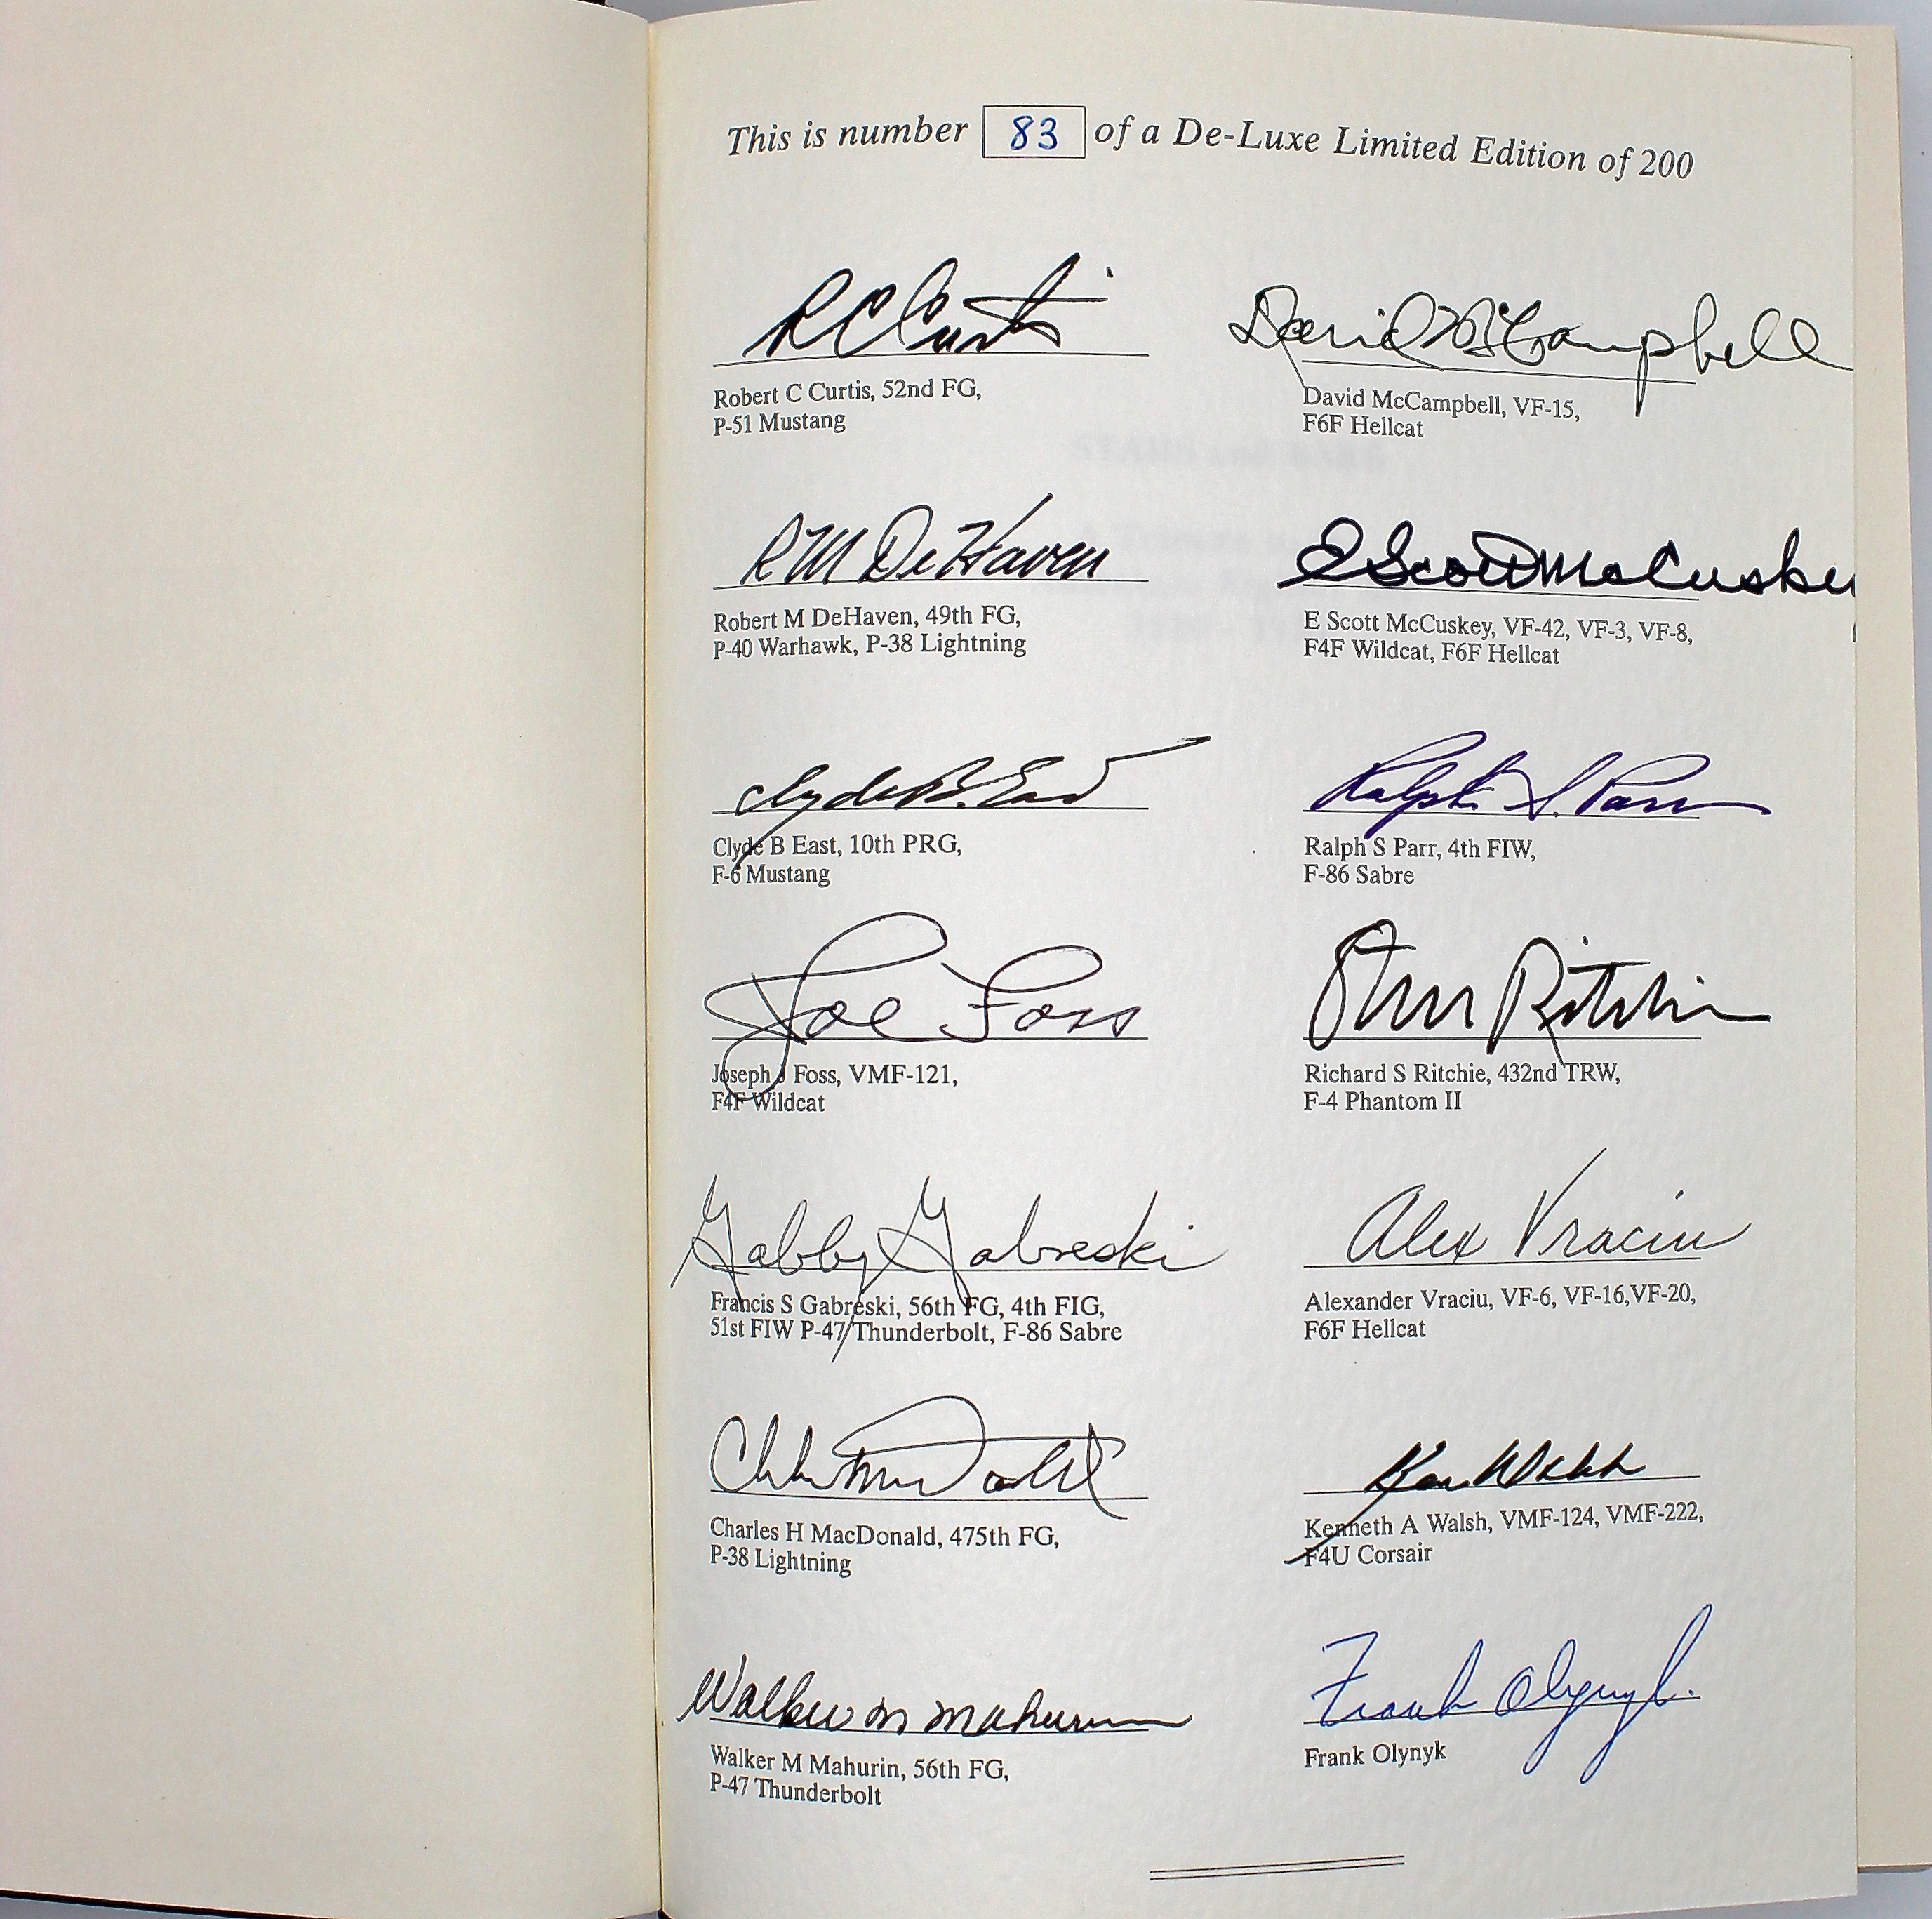 This is number 83 of a De-Luxe Limited Edition of 200
R C Curtis
Robert C Curtis, 52nd FG,
P-51 Mustang
David McCampbell
David McCampbell, VF-15,
F6F Hellcat
R M DeHaven
Robert M DeHaven, 49th FG,
P-40 Warhawk, P-38 Lightning
E Scott McCuskey
E Scott McCuskey, VF-42, VF-3, VF-8,
F4F Wildcat, F6F Hellcat
Clyde B. East
Clyde B East, 10th PRG,
F-6 Mustang
Ralph S. Parr
Ralph S Parr, 4th FIW,
F-86 Sabre
Joe Foss
Joseph J Foss, VMF-121,
F4F Wildcat
Steve Ritchie
Richard S Ritchie, 432nd TRW,
F-4 Phantom II
Gabby Gabreski
Francis S Gabreski, 56th FG, 4th FIG,
51st FIW P-47 Thunderbolt, F-86 Sabre
Alex Vraciu
Alexander Vraciu, VF-6, VF-16,VF-20,
F6F Hellcat
Charles H MacDonald, 475th FG,
P-38 Lightning
Ken Walsh
Kenneth A Walsh, VMF-124, VMF-222,
F4U Corsair
Walker M Mahurin
Walker M Mahurin, 56th FG,
P-47 Thunderbolt
Frank Olynyk.
Frank Olynyk